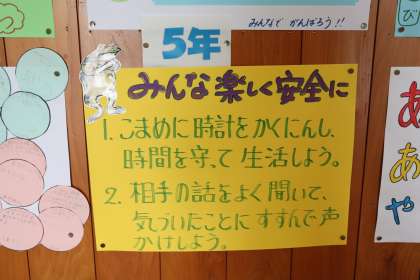 みんなで がんばろう!!
5年
みんな楽しく安全に
1. こまめに時計をかくにんし、
時間を守って生活しよう。
2. 相手の話をよく聞いて、
気づいたことにすすんで声
かけしよう。
び
あ
あ
や